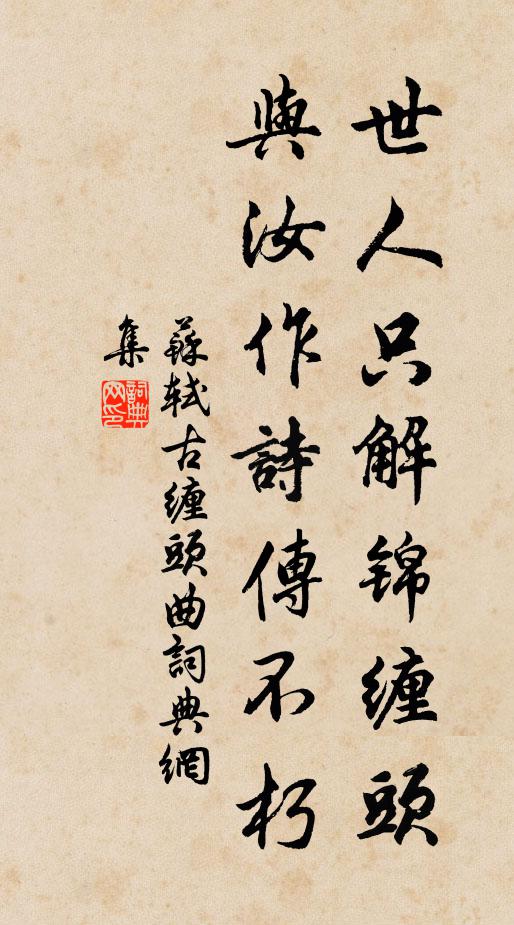 世人只解锦缠頭
與汝作詩傳不朽
蘇軾古缠頭曲詞典網
集
詞典
网印